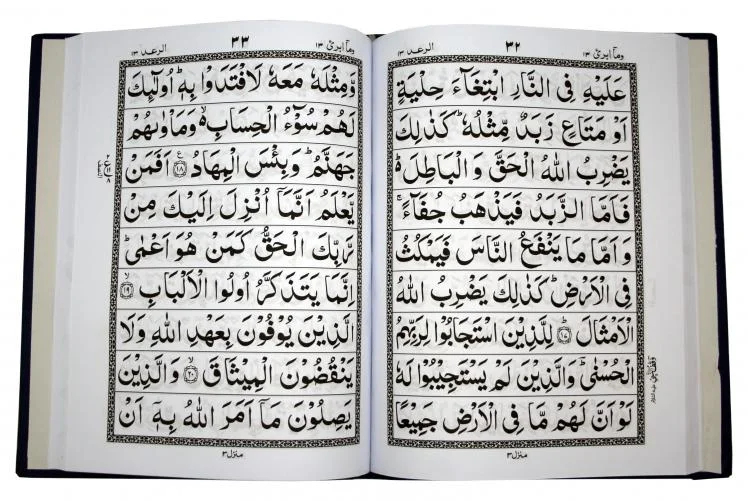 وما ابرئ ١٣
٣٢
الرعد ١٣
عَلَيْهِ فِى النَّارِ ابْتِغَآءَ حِلْيَةٍ
اَوْ مَتَاعٍ زَبَدٌ مِّثْلُهٗ ؕ كَذٰلِكَ
يَضْرِبُ اللّٰهُ الْحَقَّ وَ الْبَاطِلَ ؕ۬
فَاَمَّا الزَّبَدُ فَيَذْهَبُ جُفَآءً ۚ
وَ اَمَّا مَا يَنْفَعُ النَّاسَ فَيَمْكُثُ
فِى الْاَرْضِ ؕ كَذٰلِكَ يَضْرِبُ اللّٰهُ
الْاَمْثَالَ ؕ ﴿۱۷﴾ لِلَّذِيْنَ اسْتَجَابُوْا لِرَبِّهِمُ
الْحُسْنٰى ؕ وَالَّذِيْنَ لَمْ يَسْتَجِيْبُوْا لَهٗ
لَوْ اَنَّ لَهُمْ مَّا فِى الْاَرْضِ جَمِيْعًا
منزل ٣
وما ابرئ ١٣
٣٣
الرعد ١٣
وَّمِثْلَهٗ مَعَهٗ لَافْتَدَوْا بِهٖ ؕ اُولٰٓئِكَ
لَهُمْ سُوْٓءُ الْحِسَابِ ۙ۬ وَمَاْوٰىهُمْ
جَهَنَّمُ ؕ وَبِئْسَ الْمِهَادُ ﴿۱۸﴾ اَفَمَنْ
يَّعْلَمُ اَنَّمَاۤ اُنْزِلَ اِلَيْكَ مِنْ
رَّبِّكَ الْحَقُّ كَمَنْ هُوَ اَعْمٰى ؕ
اِنَّمَا يَتَذَكَّرُ اُولُوا الْاَلْبَابِ ۙ ﴿۱۹﴾
الَّذِيْنَ يُوْفُوْنَ بِعَهْدِ اللّٰهِ وَلَا
يَنْقُضُوْنَ الْمِيْثَاقَ ۙ ﴿۲۰﴾ وَالَّذِيْنَ
يَصِلُوْنَ مَاۤ اَمَرَ اللّٰهُ بِهٖۤ اَنْ
منزل ٣